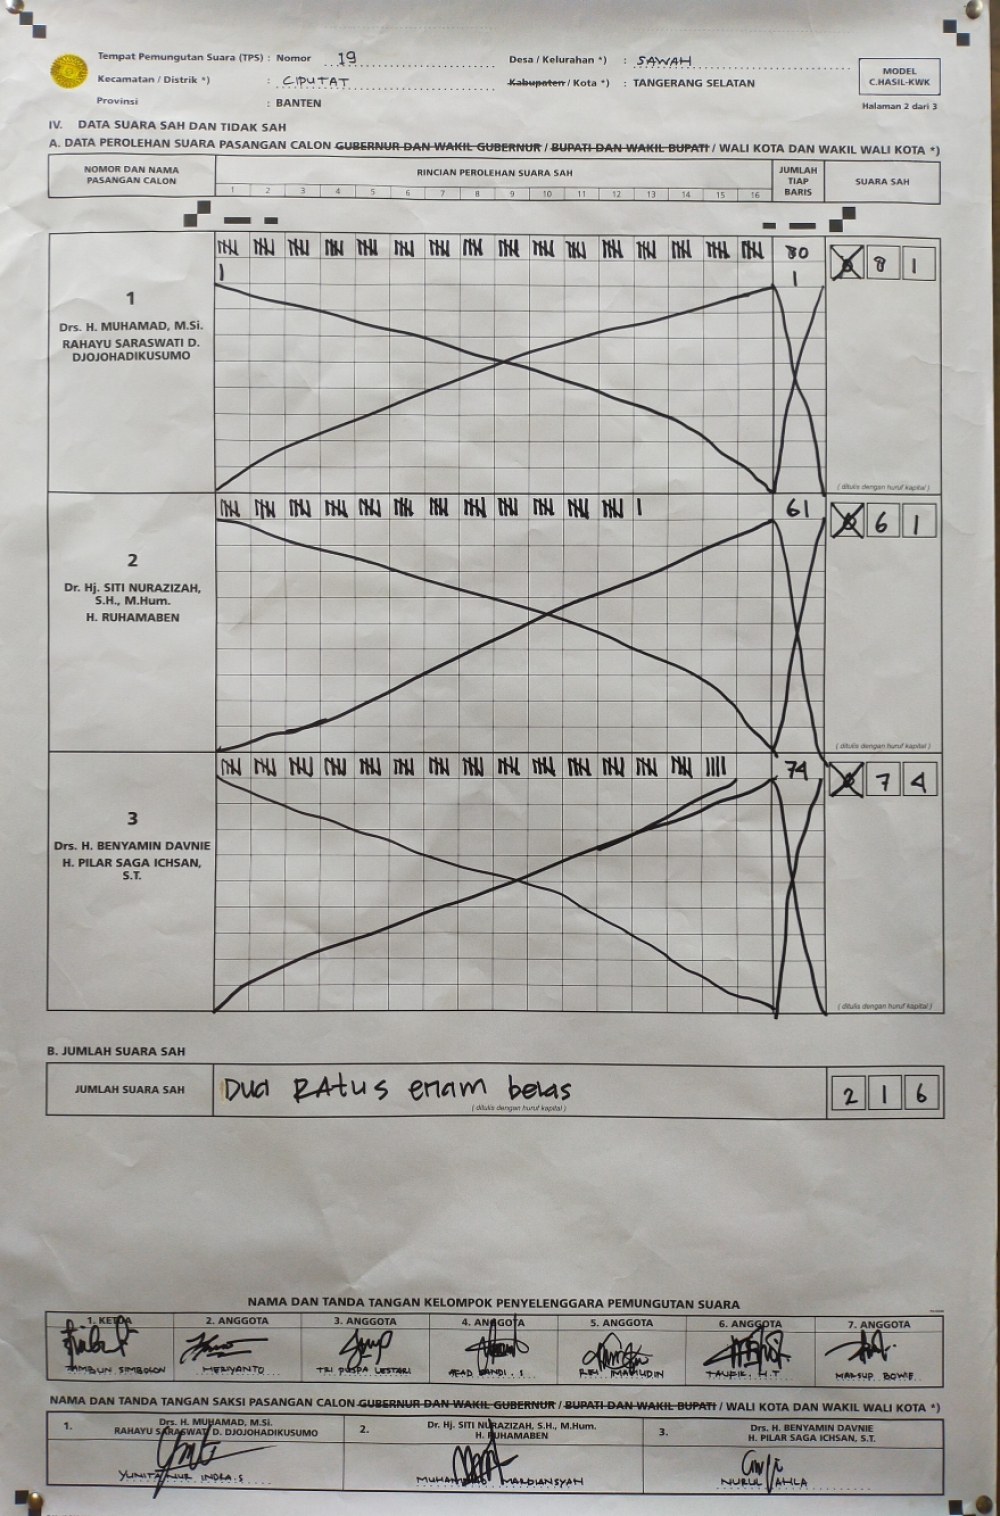 Tempat Pemungutan Suara (TPS) : Nomor 19 Desa / Kelurahan *) : SAWAH
Kecamatan / Distrik *) : CIPUTAT Kabupaten / Kota *) : TANGERANG SELATAN
Provinsi : BANTEN
MODEL
C.HASIL-KWK
Halaman 2 dari 3
IV. DATA SUARA SAH DAN TIDAK SAH
A. DATA PEROLEHAN SUARA PASANGAN CALON GUBERNUR DAN WAKIL GUBERNUR / BUPATI DAN WAKIL BUPATI / WALI KOTA DAN WAKIL WALI KOTA *)
NOMOR DAN NAMA
PASANGAN CALON
RINCIAN PEROLEHAN SUARA SAH
1 2 3 4 5 6 7 8 9 10 11 12 13 14 15 16
JUMLAH
TIAP
BARIS
SUARA SAH
1
Drs. H. MUHAMAD, M.Si.
RAHAYU SARASWATI D.
DJOJOHADIKUSUMO
80
1
8 1
( ditulis dengan huruf kapital )
2
Dr. Hj. SITI NURAZIZAH,
S.H., M.Hum.
H. RUHAMABEN
61
6 1
( ditulis dengan huruf kapital )
3
Drs. H. BENYAMIN DAVNIE
H. PILAR SAGA ICHSAN,
S.T.
74
7 4
( ditulis dengan huruf kapital )
B. JUMLAH SUARA SAH
JUMLAH SUARA SAH
Dua RAtus enam belas
( ditulis dengan huruf kapital )
2 1 6
NAMA DAN TANDA TANGAN KELOMPOK PENYELENGGARA PEMUNGUTAN SUARA
1. KETUA 2. ANGGOTA 3. ANGGOTA 4. ANGGOTA 5. ANGGOTA 6. ANGGOTA 7. ANGGOTA
TAMBUN SIMBOLON HERIYANTO TRI PUSPA LESTARI
NAMA DAN TANDA TANGAN SAKSI PASANGAN CALON GUBERNUR DAN WAKIL GUBERNUR / BUPATI DAN WAKIL BUPATI / WALI KOTA DAN WAKIL WALI KOTA *)
1. Drs. H. MUHAMAD, M.Si.
RAHAYU SARASWATI D. DJOJOHADIKUSUMO
2. Dr. Hj. SITI NURAZIZAH, S.H., M.Hum.
H. RUHAMABEN
3. Drs. H. BENYAMIN DAVNIE
H. PILAR SAGA ICHSAN, S.T.
YUNITA NUR INDRA.S
MUHAMMAD MARDIANSYAH
NURUL AHLA